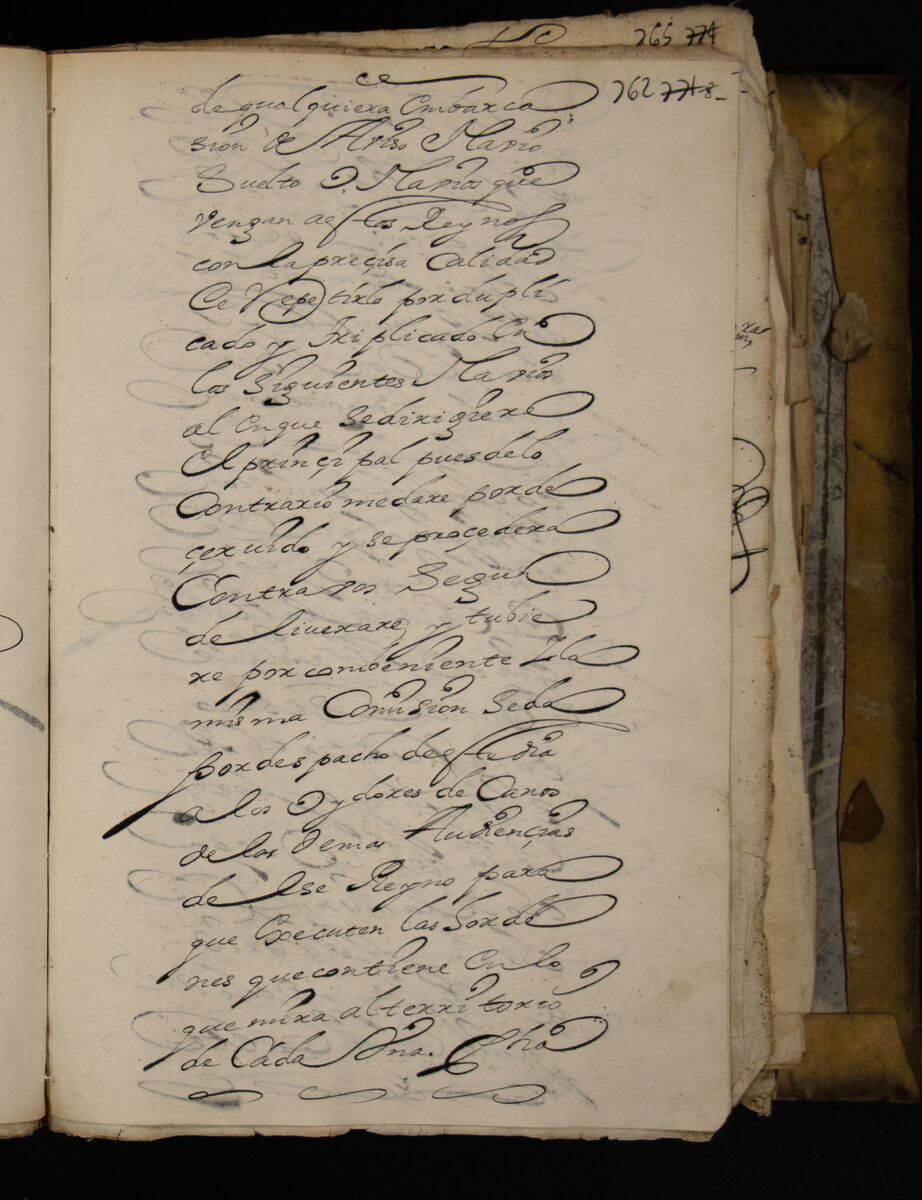 265 774
762 771 8
de qual quiera embarca
sion de Aviso Navio
Suelto O. Navios que
vengan de estos Reynos
con la preçisa calidad
De Repetirlo por dupli
cado y triplicado En
los Siguientes Navios
al en que se dirigiere
El prinçipal pues de lo
Contrario me dare por de
çeruido y se proçedera
Contra vos Segun
de liuerare y tubie
re por combeniente Y la
misma Comision Se da
por des pacho de este dia
a los Oydores de Canos
de las demas Audiençias
de Ese Reyno para
que Executen las horde
nes que contiene En lo
que mira al territorio
de Cada Una. fha